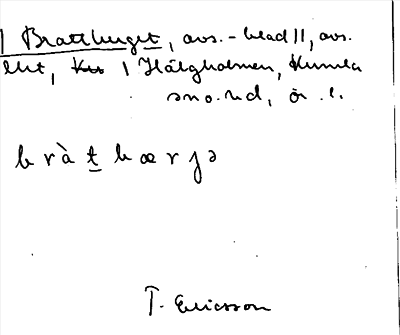 | Brattberget, avs.-blad 11, avs.
1 Hälgholmen, Kumla
sn o. hd, ör. l.
bràt bærjə
T. Ericsson